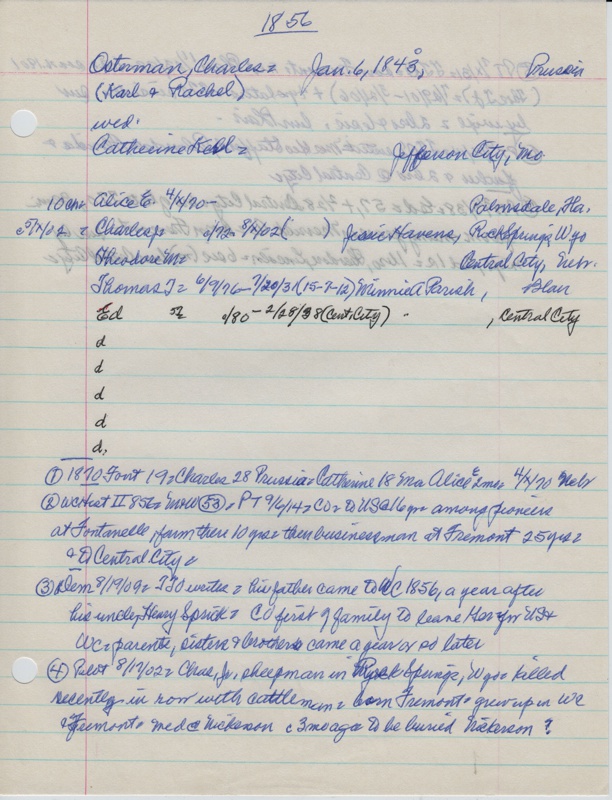 1856
Osterman, Charles = Jan. 6, 1843, Prussia
(Karl & Rachel)
wed.
Catherine = Jefferson City, Mo
10 ch = Alice E 4/4/70 - Palmsdale, Fla.
c5/7/02 = Charles Jr c/72 - 8/7/02 ( ) Jessie Havens, Rock Springs, Wyo
Theodore M = Central City, Nebr.
Thomas J = 6/9/76 - 7/20/31 (15-7-12) Winnie A Parish, Blair
Ed c/80 - 2/28/38 (Cent. City) " , Central City
d
d
d
d
d.
① 1870 Font 19 = Charles 28 Prussia = Catherine 18 Mo Alice E 2mo = 4/4/70 Nebr
② WCHist II 856 = (53) = P T 9/6/14 = CO = to US @ 16 yr = among pioneers
at Fontanelle, farm there 10 yrs = then businessman at Fremont 25 yrs =
& to Central City =
③ Dem 8/19/09 = TJO writes = his father came to WC 1856, a year after
his uncle, Henry Sprick = CO first of family to leave Ger for US +
WC = parents, sisters & brothers came a year or so later
④ Pilot 8/17/02 = Chas, Jr, sheepman in Rock Springs, Wyo = killed
recently in row with cattleman = born Fremont = grew up in WC
& Fremont = med @ Nickerson c 3 mo ago = to be buried Nickerson ?